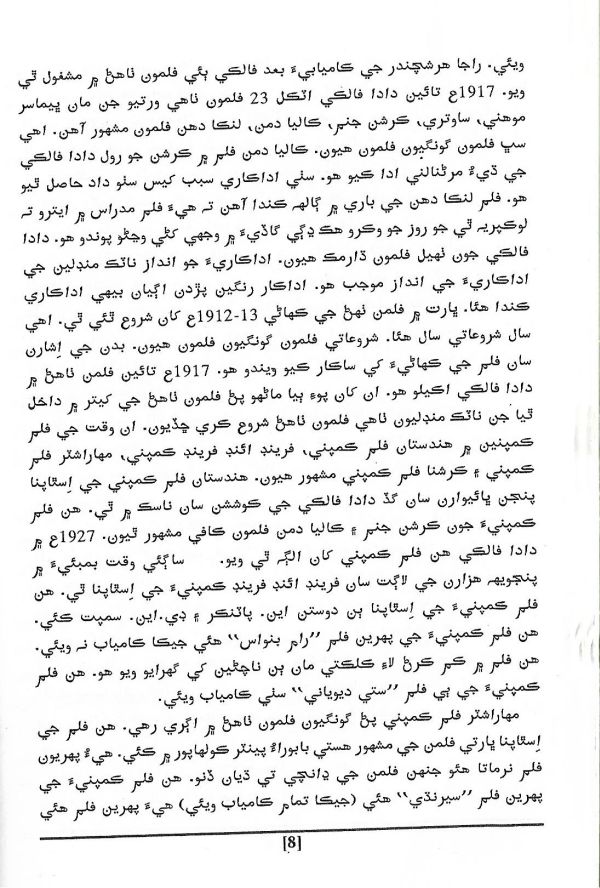 ويئي. راجا هرشچندر جي ڪاميابيءَ بعد فالڪي ٻئي فلمون ٺاهڻ ۾ مشغول ٿي
ويو. 1917ع تائين دادا فالڪي اٽڪل 23 فلمون ٺاهي ورتيو جن مان ڀيماسر
موهني، ساوتري، ڪرشن جنم، ڪاليا دمن، لنڪا دهن فلمون مشهور آهن. اهي
سڀ فلمون گونگيون فلمون هيون. ڪاليا دمن فلم ۾ ڪرشن جو رول دادا فالڪي
جي ڌيءُ مرڻنالني ادا ڪيو هو. سٺي اداڪاري سبب کيس سٺو داد حاصل ٿيو
هو. فلم لنڪا دهن جي باري ۾ ڳالهه ڪندا آهن ته هيءَ فلم مدراس ۾ ايترو ته
لوڪپريه ٿي جو روز جو وڪرو هڪ ڍڳي گاڏيءَ ۾ وجهي کڻي وڃڻو پوندو هو. دادا
فالڪي جون ٺهيل فلمون ڌارمڪ هيون. اداڪاريءَ جو انداز ناٽڪ منڊلين جي
اداڪاريءَ جي انداز موجب هو. اداڪار رنگين پڙدن اڳيان بيهي اداڪاري
ڪندا هئا. ڀارت ۾ فلمن ٺهڻ جي ڪهاڻي 13-1912ع کان شروع ٿئي ٿي. اهي
سال شروعاتي سال هئا. شروعاتي فلمون گونگيون فلمون هيون. بدن جي اِشارن
سان فلم جي ڪهاڻيءَ کي ساڪار ڪيو ويندو هو. 1917ع تائين فلمن ٺاهڻ ۾
دادا فالڪي اڪيلو هو. ان کان پوءِ ٻيا ماڻهو پڻ فلمون ٺاهڻ جي کيتر ۾ داخل
ٿيا جن ناٽڪ منڊليون ٺاهي فلمون ٺاهڻ شروع ڪري ڇڏيون. ان وقت جي فلم
ڪمپنين ۾ هندستان فلم ڪمپني، فرينڊ ائنڊ فرينڊ ڪمپني، مهاراشٽر فلم
ڪمپني ۽ ڪرشنا فلم ڪمپني مشهور هيون. هندستان فلم ڪمپني جي اِسٿاپنا
پنجن ڀائيوارن سان گڏ دادا فالڪي جي ڪوششن سان ناسڪ ۾ ٿي. هن فلم
ڪمپنيءَ جون ڪرشن جنم ۽ ڪاليا دمن فلمون ڪافي مشهور ٿيون. 1927ع ۾
دادا فالڪي هن فلم ڪمپني کان الڳ ٿي ويو. ساڳئي وقت بمبئيءَ ۾
پنجويهه هزارن جي لاڳت سان فرينڊ ائنڊ فرينڊ ڪمپنيءَ جي اِسٿاپنا ٿي. هن
فلم ڪمپنيءَ جي اِسٿاپنا ٻن دوستن اين. پاٽنڪر ۽ ڊي.اين. سمپت ڪئي.
هن فلم ڪمپنيءَ جي پهرين فلم ”رام بنواس“ هئي جيڪا ڪامياب نه ويئي.
هن فلم ۾ ڪم ڪرڻ لاءِ ڪلڪتي مان ٻن ناچڻين کي گهرايو ويو هو. هن فلم
ڪمپنيءَ جي ٻي فلم ”ستي ديوياني“ سٺي ڪامياب ويئي.
مهاراشٽر فلم ڪمپني پڻ گونگيون فلمون ٺاهڻ ۾ اڳري رهي. هن فلم جي
اِسٿاپنا ڀارتي فلمن جي مشهور هستي بابوراءُ پينٽر ڪولهاپور ۾ ڪئي. هيءُ پهريون
فلم نرماتا هئو جنهن فلمن جي ڍانچي تي ڌيان ڏنو. هن فلم ڪمپنيءَ جي
پهرين فلم ”سيرنڌي“ هئي (جيڪا تمام ڪامياب ويئي) هيءَ پهرين فلم هئي
[8]